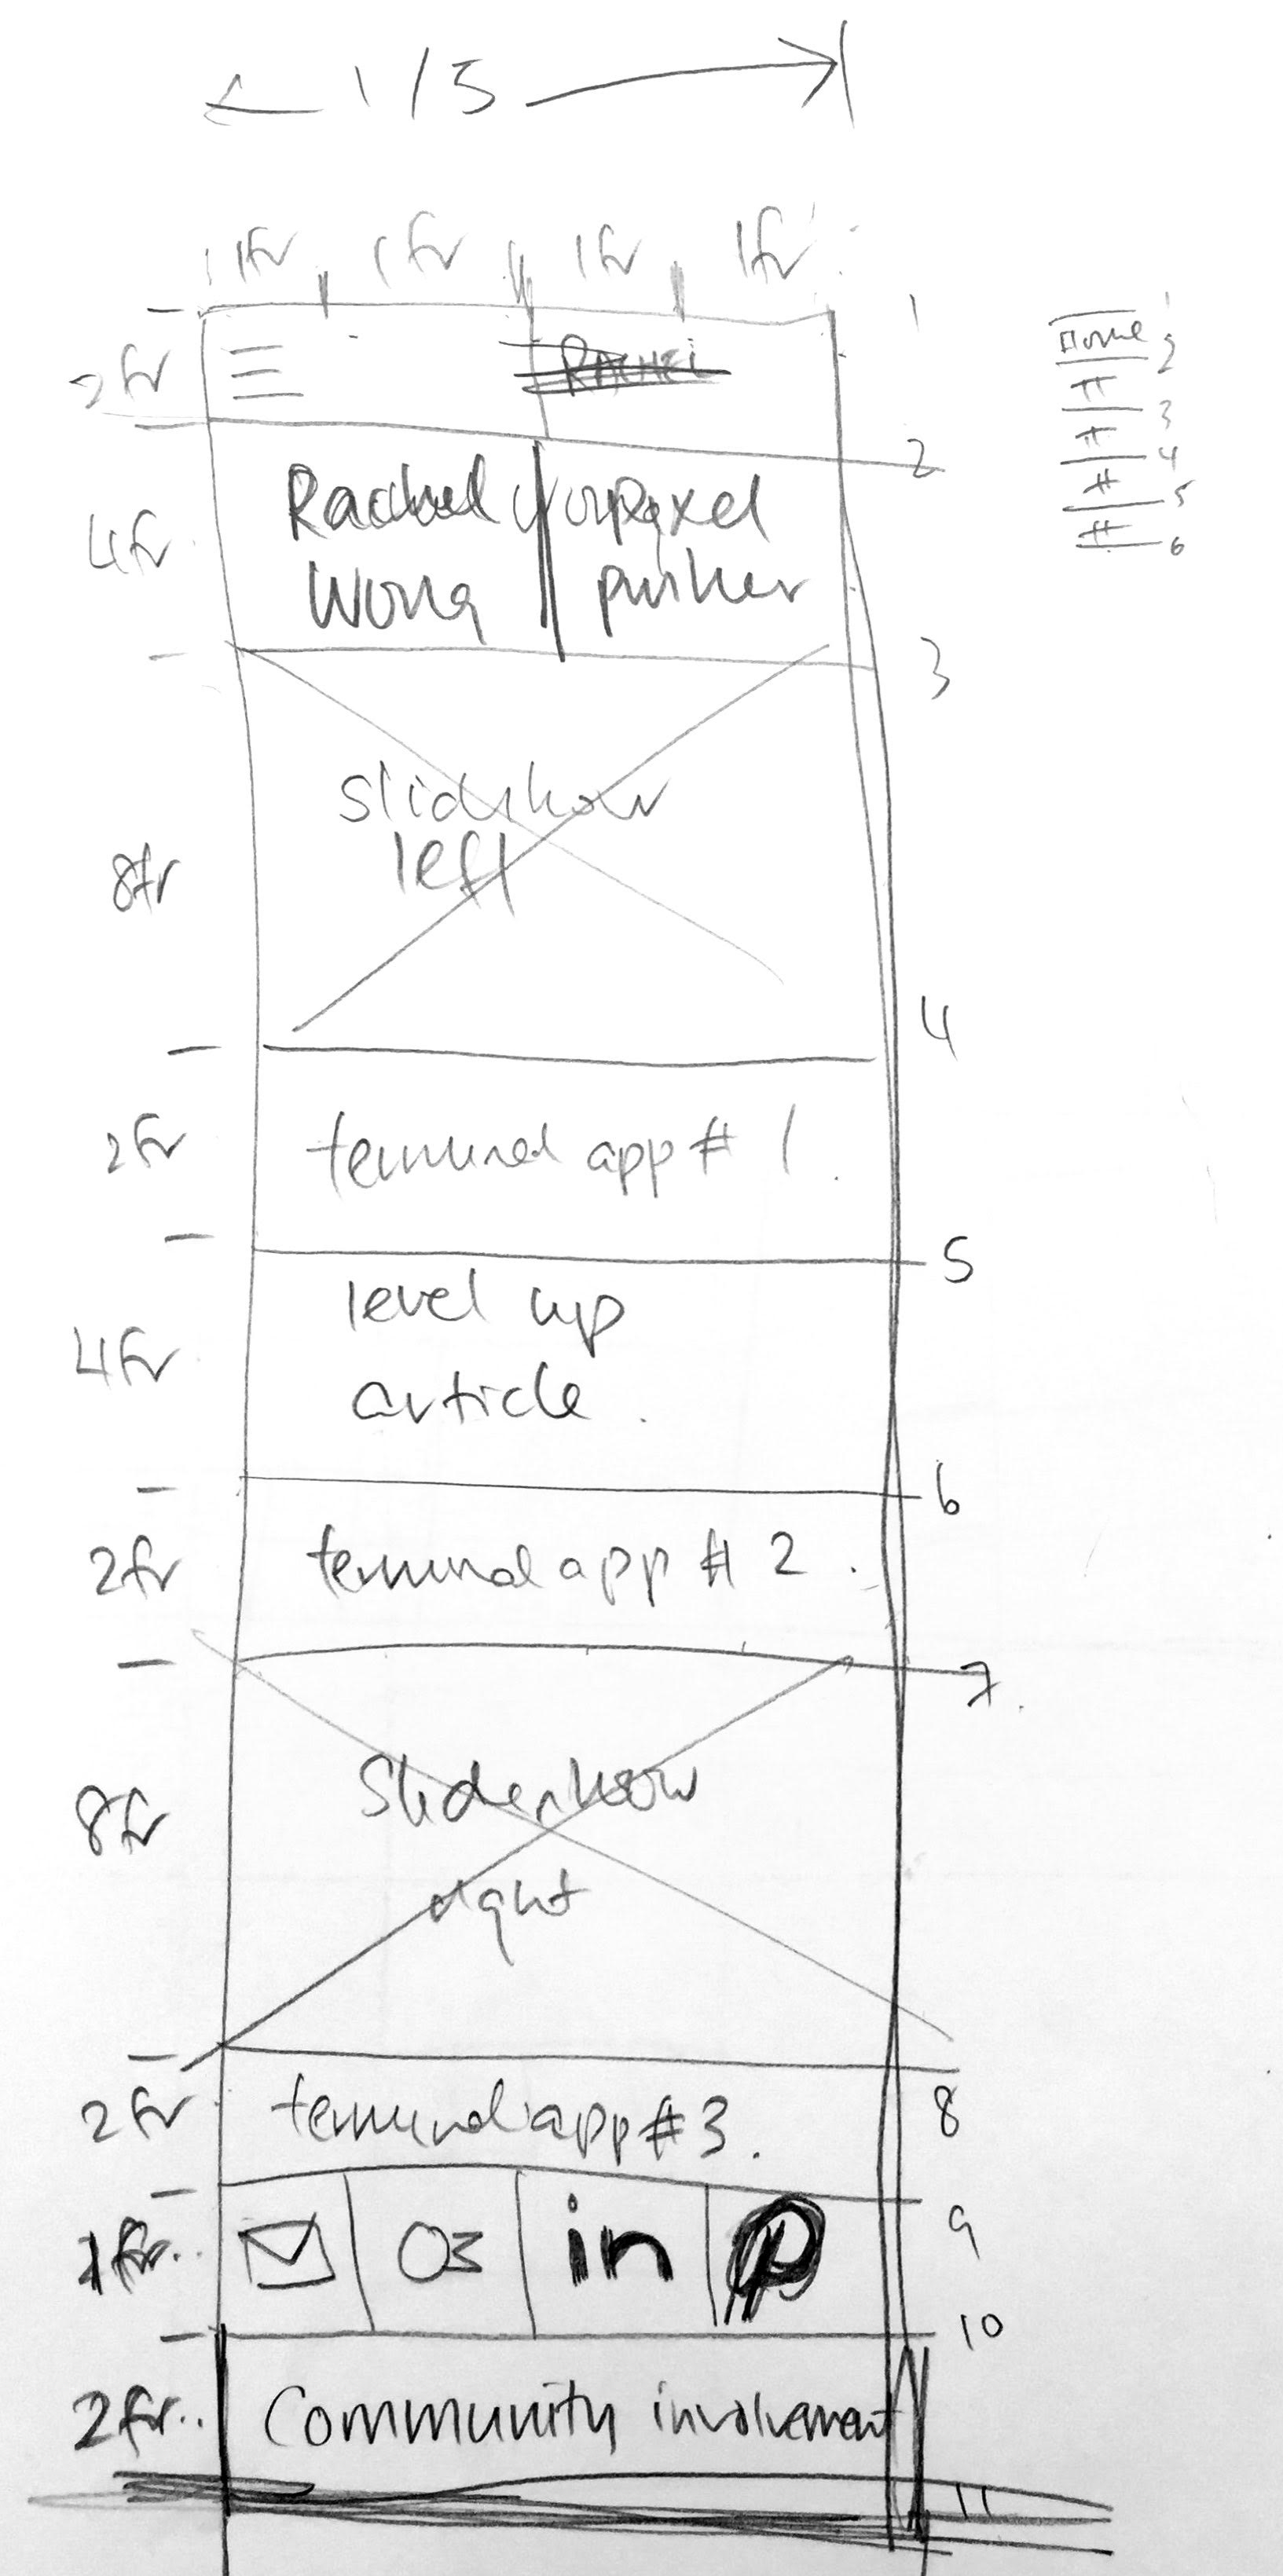 1/5
1fr 1fr 1fr 1fr
1
2fr
Home 2
# 3
# 4
# 5
# 6
2
4fr
Rachel
Wong
pusher
3
8fr
slideshow
left
4
2fr
terminal app # 1.
5
4fr
level up
article.
6
2fr
terminal app # 2.
7.
8fr
Slideshow
right
8
2fr
terminal app #3.
9
1fr..
in
P
10
2fr..
Community involvement
11